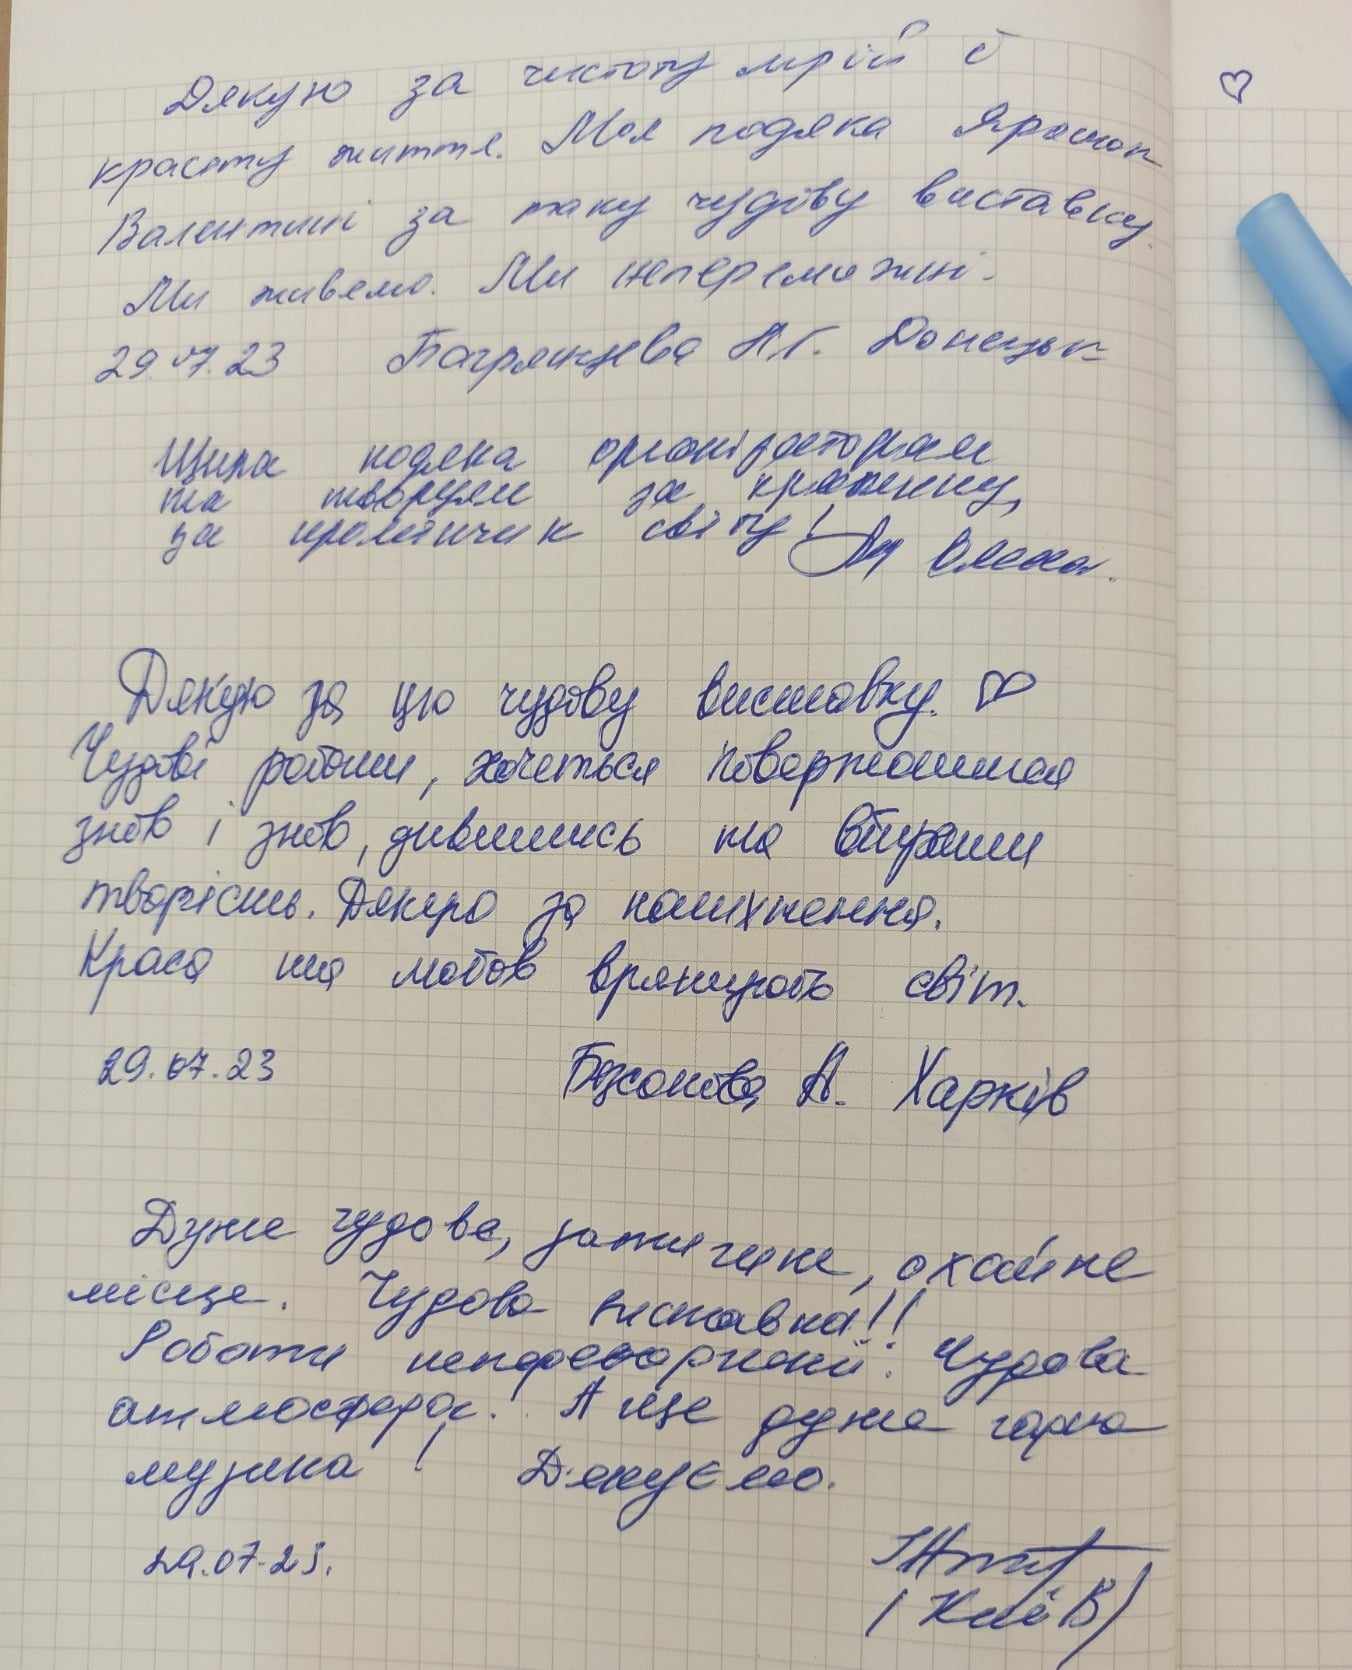 Дякую за чистоту мрій і
красоту життя. Моя подяка
Валентині за таку чудову виставку.
Ми живемо. Ми непереможні.
29.07.23 Багрянцева А.Г. Донецьк
Щира подяка організаторам
та творцям за краплинку,
за промінчик світу! Олена.
Дякую за цю чудову виставку. ♡
Чудові роботи, хочеться повертатися
знов і знов, дивитись та вбирати
творчість. Дякую за натхнення.
Краса та любов врятують світ.
29.07.23 А. Харків
Дуже чудове, затишне, охайне
місце. Чудова виставка!!
Роботи неперевершені! Чудова
атмосфера! А ще дуже гарна
музика! Дякуємо.
29.07.23.
(Київ)